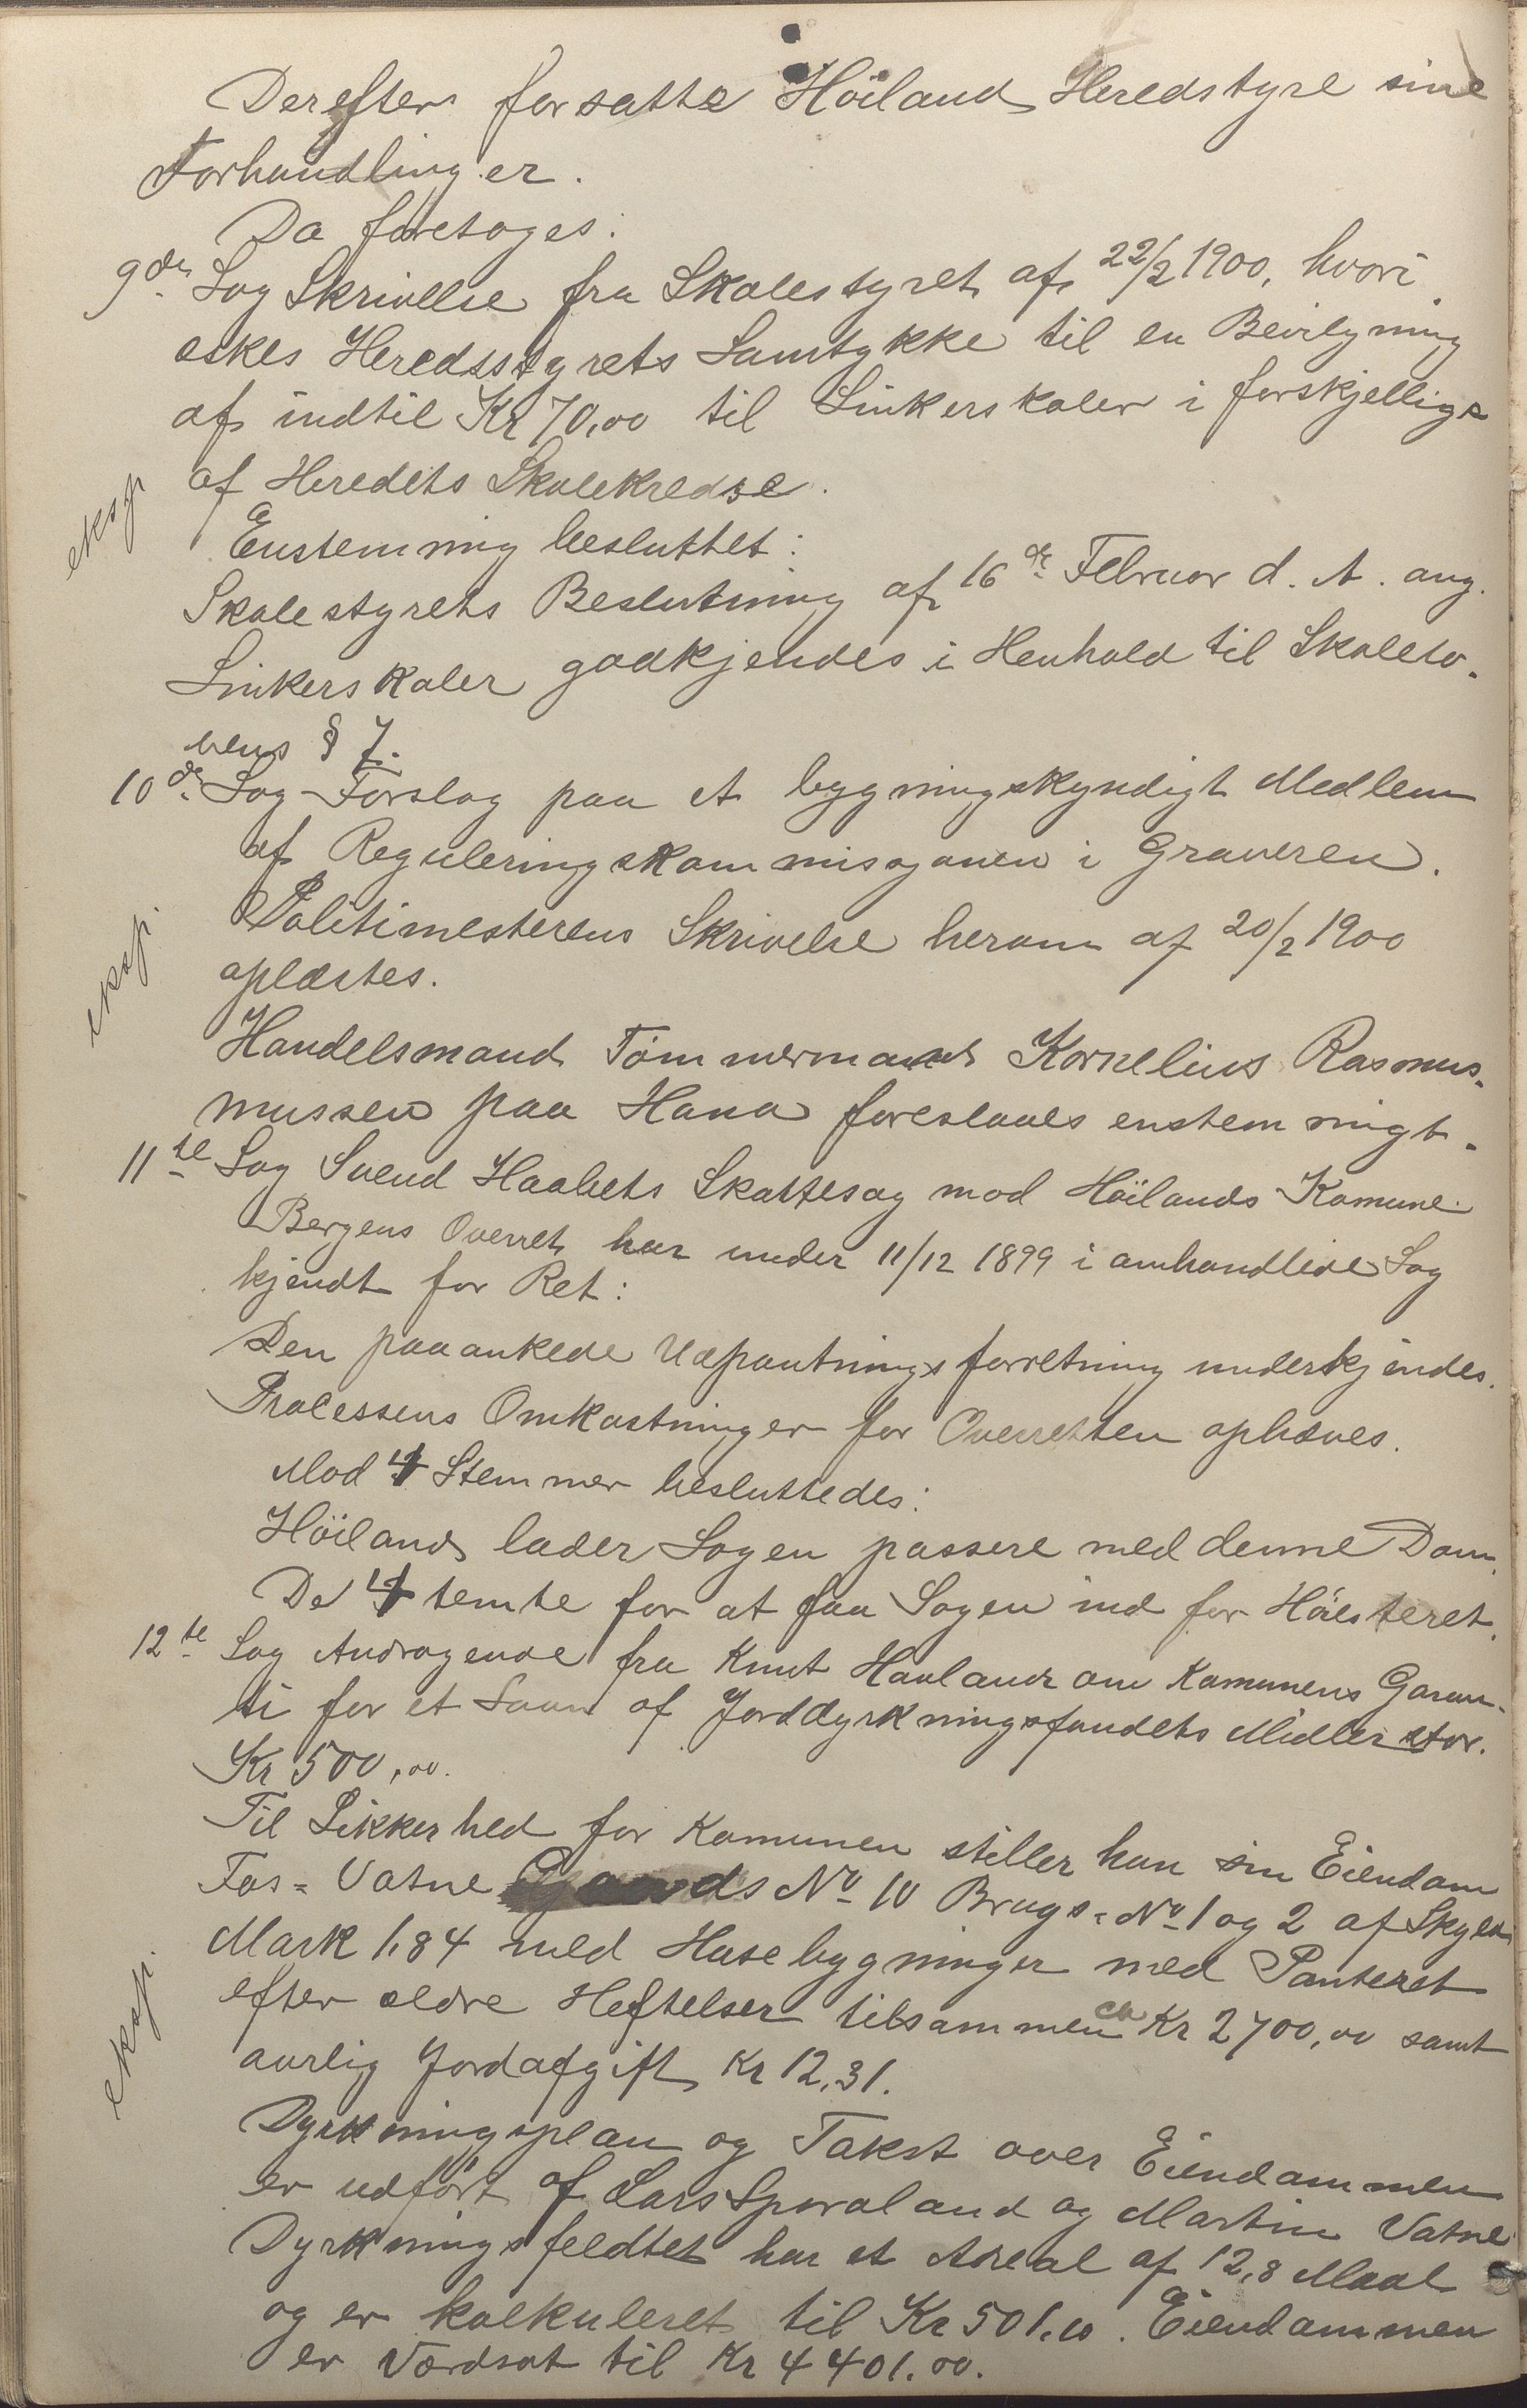 Derefter forsatte Höiland Heredstyre sine
Forhandlinger.
Da foretoges:
9de Sag Skrivelse fra Skolestyret af 22/2 1900, hvori
eskes Heredsstyrets Samtykke til en Bevilgning
af indtil Kr 70,00 til Sinkerskoler i forskjellige
af Heredets Skolekredse.
eksp
Enstemmig besluttet:
Skolestyrets Beslutning af 16de Februar d. A. ang.
Sinkerskoler godkjendes i Henhold til Skolelo-
vens § 7.
10de Sag Forslag paa et bygningskyndigt Medlem
af Reguleringskommisjonen i Graveren.
Politimesterens Skrivelse herom af 20/2 1900
oplæstes.
eksp.
Handelsmand Tömmermand Kornelius Rasmus-
mussen paa Hana foreslaaes enstemmigt.
11te Sag Svend Haabets Skattesag mod Höilands Komune.
Bergens Overret har under 11/12 1899 i omhandlede Sag
kjendt for Ret:
Den paaankede Udpantningsforretning underkjendes.
Processens Omkostninger for Overretten ophæves.
Mod 4 Stemmer besluttedes:
Höiland lader Sagen passere med denne Dom.
De 4 stemte for at faa Sagen ind for Höiesteret.
12te Sag Andragende fra Knut Havland om Komunens Garan-
ti for et Laan af Jorddyrkningsfondets Midler stor.
Kr 500,00.
Til Sikkerhed for Komunen stiller han sin Eiendom
Fos-Vatne Gaards No 10 Brugs-No 1 og 2 af Skyld
Mark 1,84 med Husebygninger med Panteret
efter ældre Heftelser tilsammen ca Kr 2700,00 samt
aarlig Jordafgift Kr 12,31.
eksp.
Dyrkningsplan og Takst over Eiendommen
er udfört af Lars Sporaland og Martin Vatne
Dyrkningsfeldtet har et Areal af 12,8 Maal
og er kalkuleret til Kr 501.10. Eiendommen
er Værdsat til Kr 4401.00.